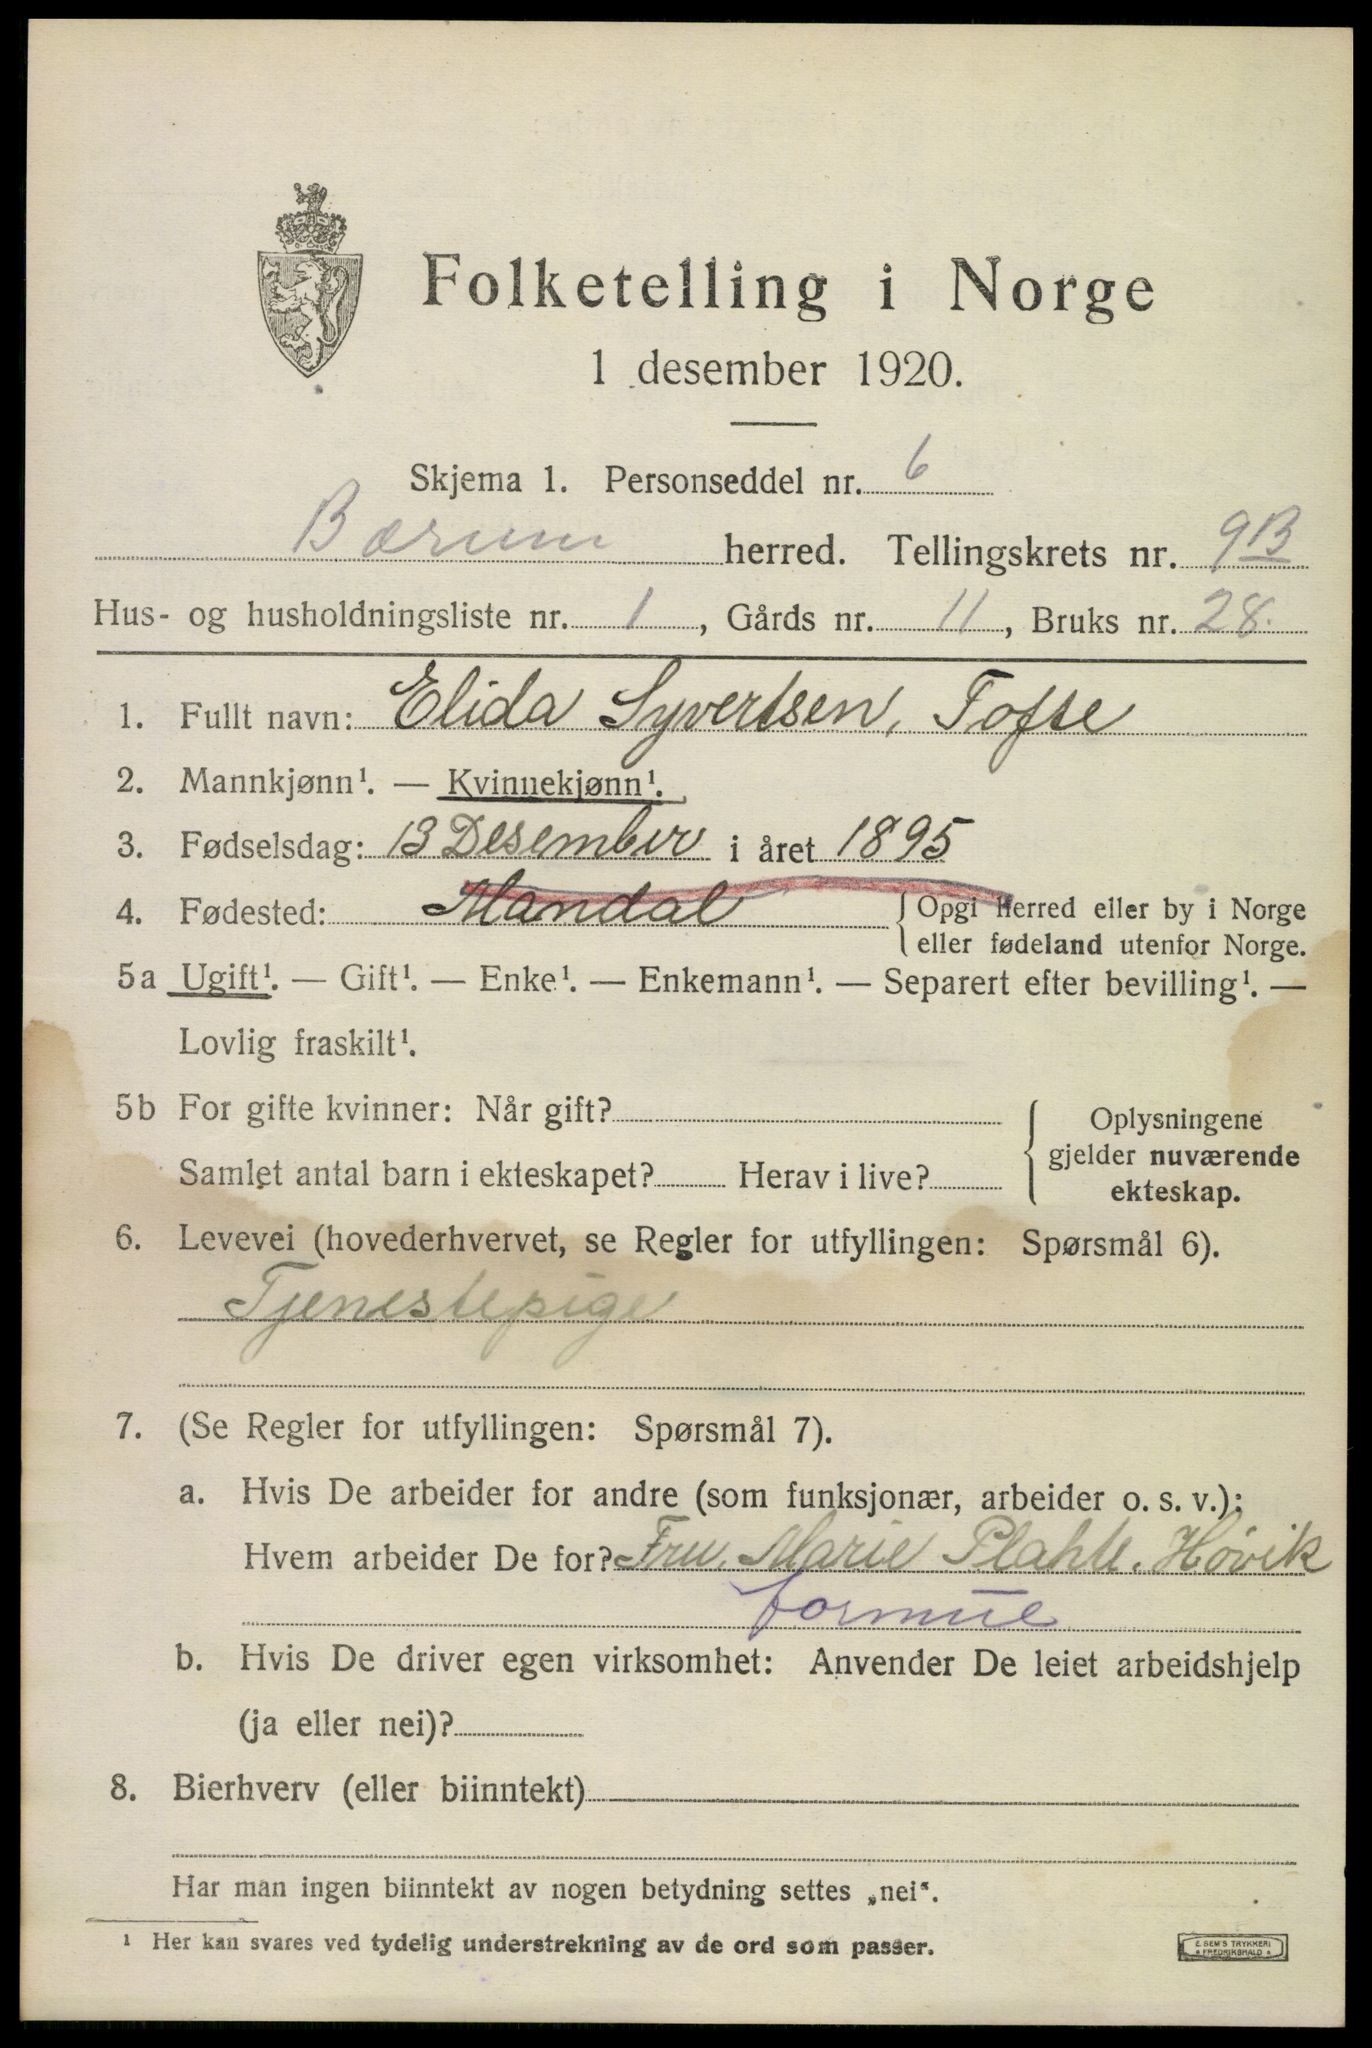 Folketelling i Norge
1 desember 1920.
Skjema 1. Personseddel nr. 6
Bærum herred. Tellingskrets nr. 9B
Hus- og husholdningsliste nr. 1, Gårds nr. 11, Bruks nr. 28.
1. Fullt navn: Elida Syvertsen, Tofte
2. Mannkjønn¹. — Kvinnekjønn¹.
3. Fødselsdag: 13 Desember i året 1895
4. Fødested: Mandal { Opgi herred eller by i Norge
eller fødeland utenfor Norge.
5a Ugift¹. — Gift¹. — Enke¹. — Enkemann¹. — Separert efter bevilling¹. —
Lovlig fraskilt¹.
5b For gifte kvinner: Når gift?
Samlet antal barn i ekteskapet? Herav i live?
{ Oplysningene
gjelder nuværende
ekteskap.
6. Levevei (hovederhvervet, se Regler for utfyllingen: Spørsmål 6).
Tjenestepige
7. (Se Regler for utfyllingen: Spørsmål 7).
a. Hvis De arbeider for andre (som funksjonær, arbeider o. s. v.):
Hvem arbeider De for? Fru. Marie Plahte. Høvik
formue
b. Hvis De driver egen virksomhet: Anvender De leiet arbeidshjelp
(ja eller nei)?
8. Bierhverv (eller biinntekt)
Har man ingen biinntekt av nogen betydning settes „nei“.
¹ Her kan svares ved tydelig understrekning av de ord som passer.
E. SEM'S TRYKKERI
FREDRIKSHALD